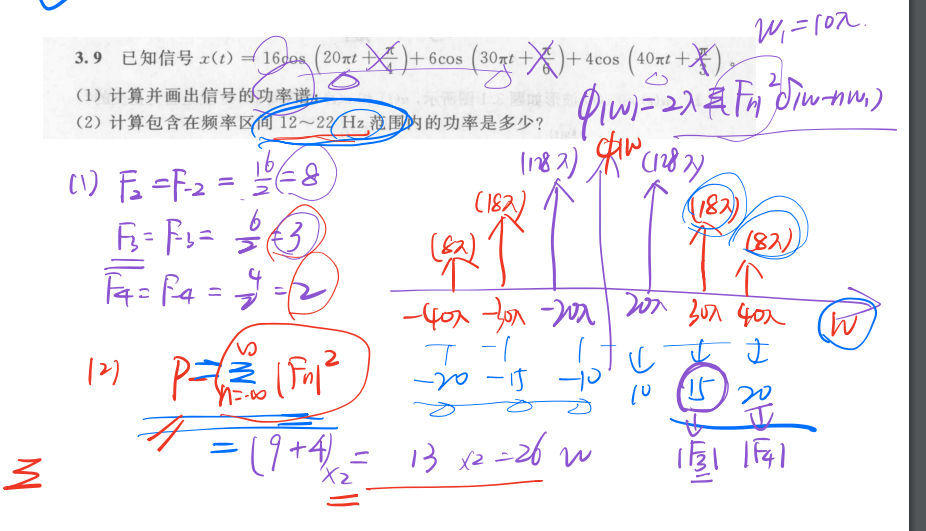 W₁=10π.
3.9 已知信号 x(t) = 16cos (20πt + π/4) + 6cos (30πt + π/6) + 4cos (40πt + π/3)。
(1) 计算并画出信号的功率谱;
(2) 计算包含在频率区间 12～22 Hz 范围内的功率是多少?
ϕ(w)=2π Σ |Fn|² δ(w-nw₁)
(1) F₂ = F₋₂ = 16/2 = 8
F₃ = F₋₃ = 6/2 = 3
F₄ = F₋₄ = 4/2 = 2
ϕ(w
(8π) (18π) (128π) (128π) (18π) (8π)
-40π -30π -20π 20π 30π 40π W
-20 -15 -10 10 15 20
|F₃| |F₄|
(2) P = Σ n=-∞ ∞ |Fn|²
= (9+4)×2 = 13 ×2 = 26 w
Σ